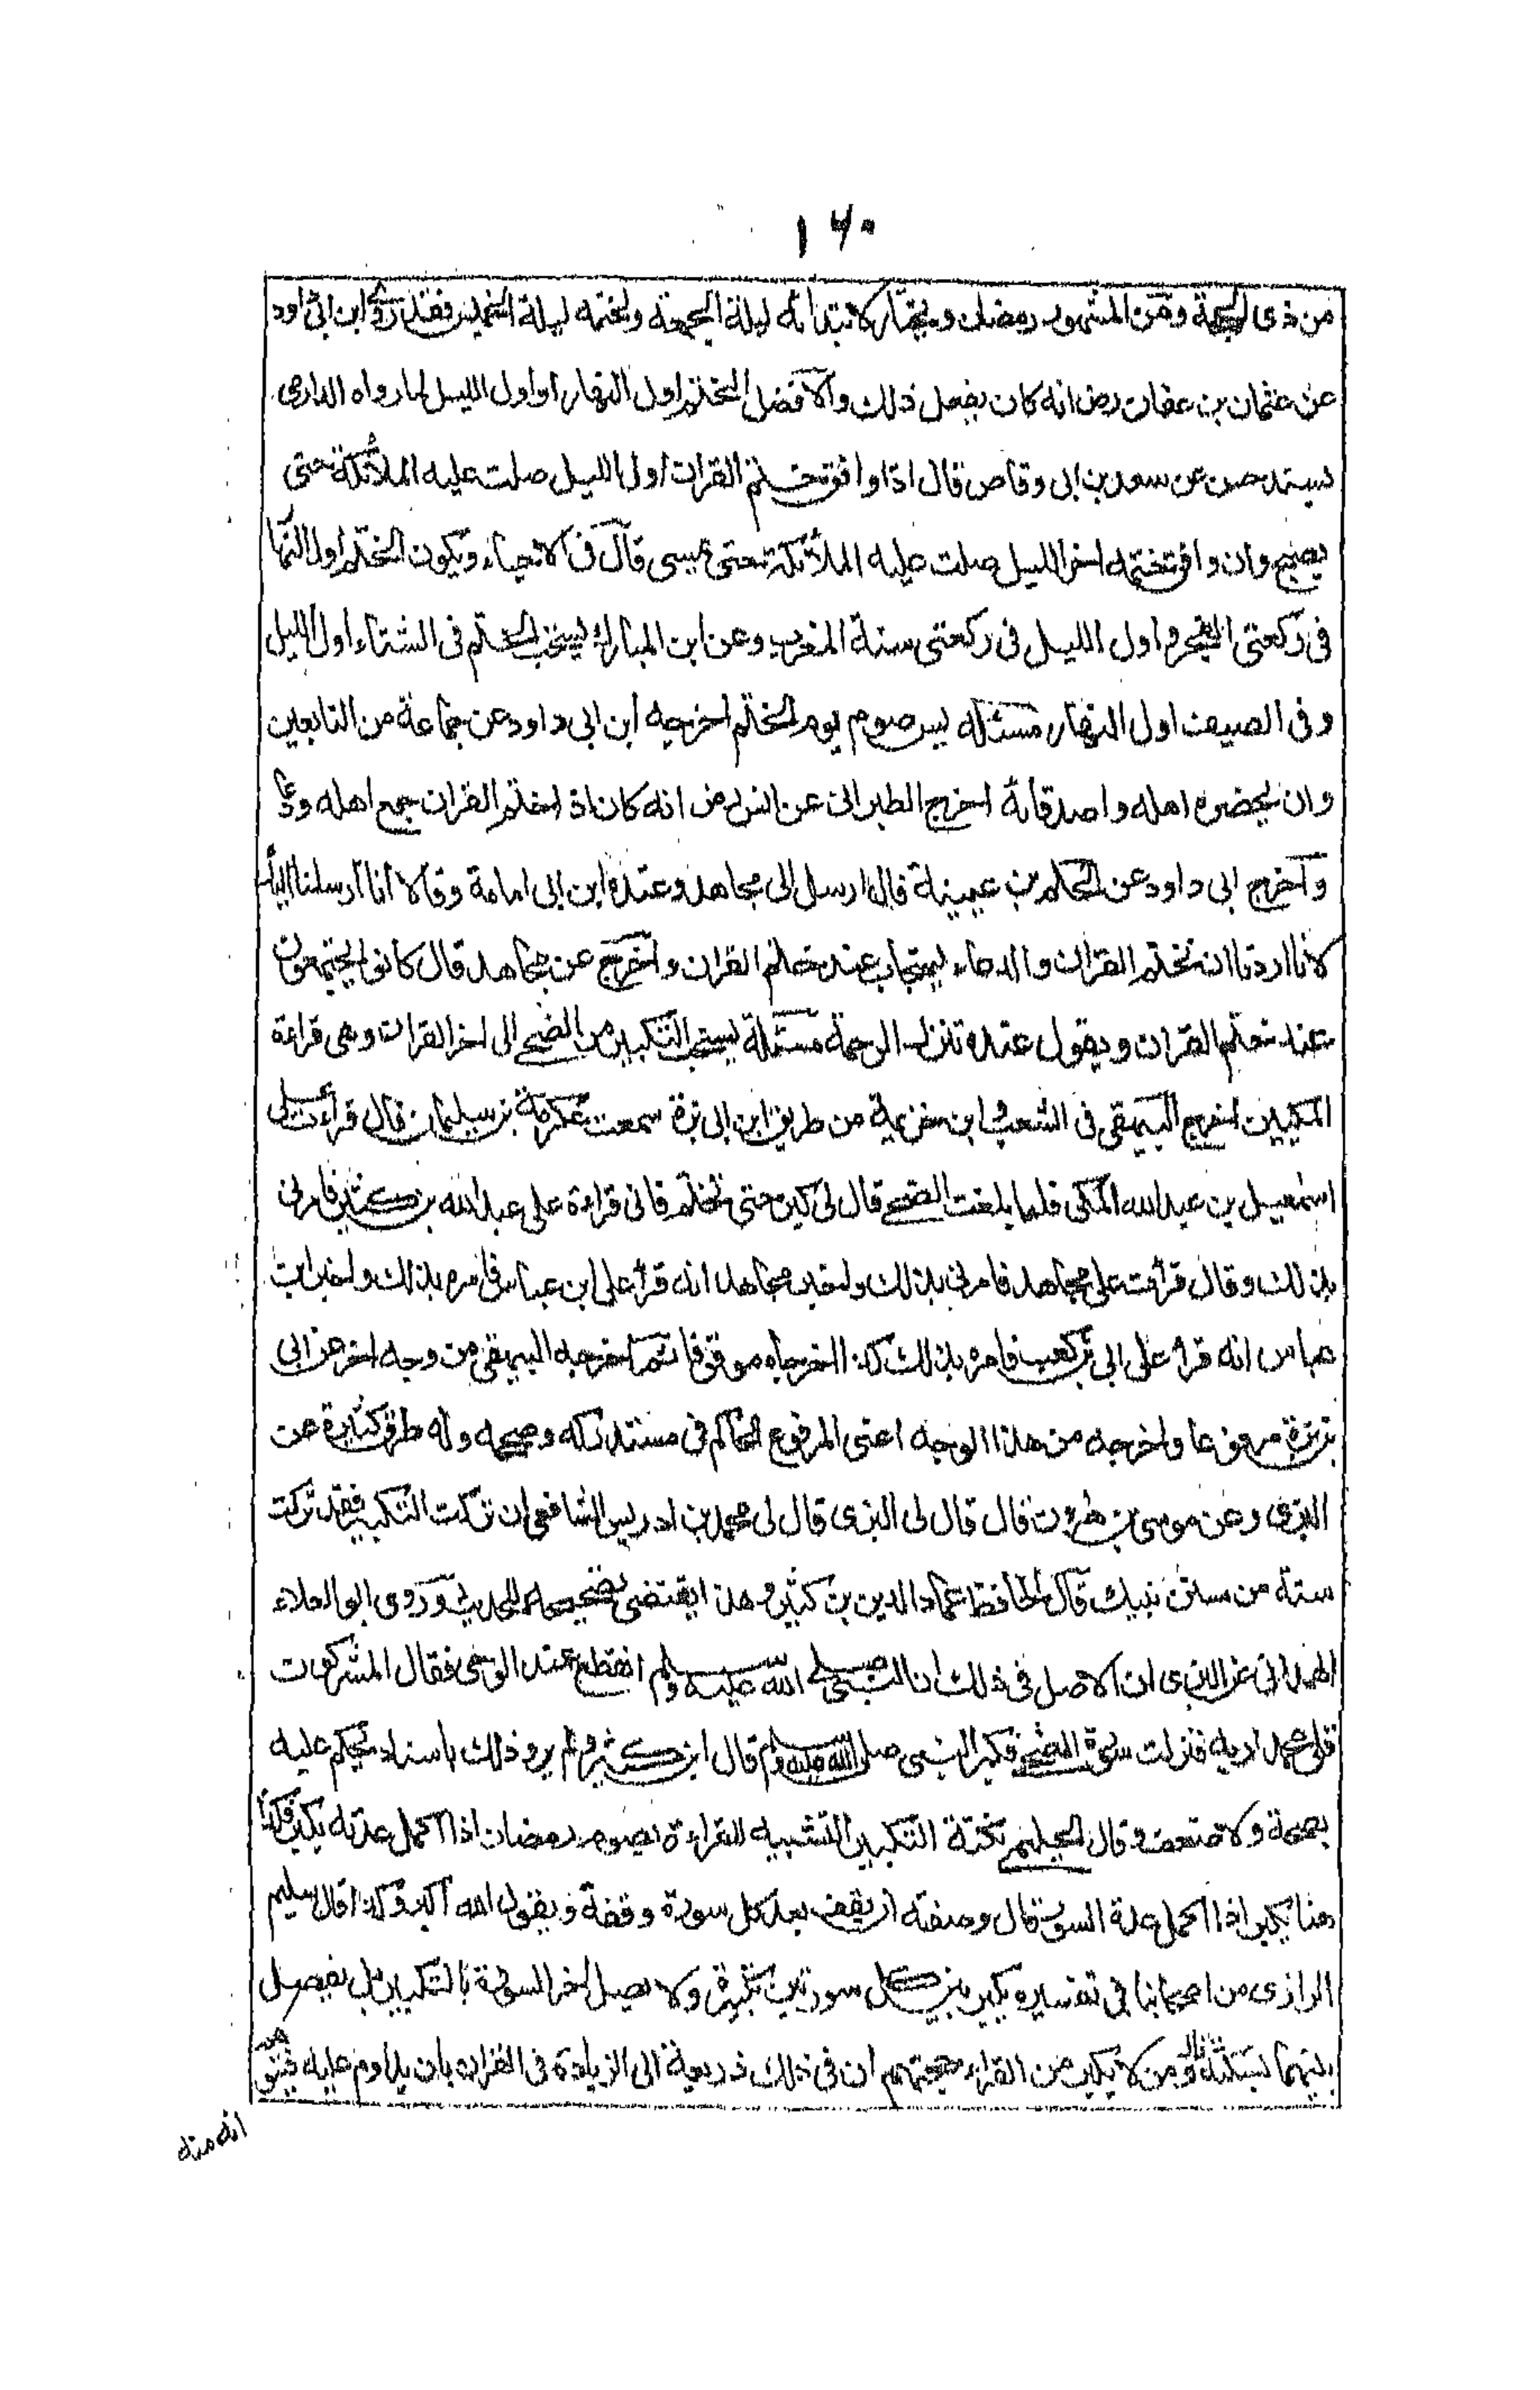 ١٦٠
من ذى الحجة ومن الشهور رمضان ويختار لابتدائه ليلة الجمعة ولختمه ليلة الخميس فقد روى ابن ابى داود
عن عثمان بن عفان رض انه كان يفعل ذلك والافضل الختم اول النهار او اول الليل لما رواه الدارمى
بسند حسن عن سعد بن ابى وقاص قال اذا وافق ختم القران اول الليل صلت عليه الملائكة حتى
يصبح وان وافق ختمه اخر الليل صلت عليه الملائكة حتى يمسى قال فى الاحياء ويكون الختم اول النهار
فى ركعتى الفجر واول الليل فى ركعتى سنة المغرب وعن ابن المبارك يستحب الختم فى الشتاء اول الليل
وفى الصيف اول النهار مسئلة يسن صوم يوم الختم اخرجه ابن ابى داود عن جماعة من التابعين
وان يحضره اهله واصدقائه اخرج الطبرانى عن انس رض انه كان اذا ختم القران جمع اهله ودعا
واخرج ابى داود عن الحكم بن عيينة قال ارسل الى مجاهد وعنده ابن ابى امامة وقالا انا ارسلنا اليك
لانا اردنا ان نختم القران والدعاء يستجاب عند ختم القران واخرج عن مجاهد قال كانوا يجتمعون
عند ختم القران ويقول عنده تنزل الرحمة مسئلة يستحب التكبير من الضحى الى اخر القران وهى قراءة
المكيين اخرج البيهقى فى الشعب وابن خزيمة من طريق ابن ابى بزة سمعت عكرمة بن سليمان قال قرأت على
اسمعيل بن عبد الله المكى فلما بلغت الضحى قال لى كبر حتى تختم فانى قراءة على عبد الله بن كثير فامرنى
بذلك وقال قرأت على مجاهد فامرنى بذلك واخبر مجاهد انه قرأ على ابن عباس فامره بذلك واخبر ابن
عباس انه قرأ على ابى بن كعب فامره بذلك كذا اخرجاه موقوفا ثم اخرجه البيهقى من وجه اخر عن ابى
بزة مرفوعا واخرجه من هذا الوجه اعنى المرفوع الحاكم فى مستدركه وصححه وله طرق كثيرة عن
البزى وعن موسى بن هارون قال قال لى البزى قال لى محمد بن ادريس الشافعى ان تركت التكبير فقد تركت
سنة من سنن نبيك قال الحافظ عماد الدين بن كثير وهذا يقتضى تصحيحه للحديث وروى ابو العلاء
الهمدانى عن البزى ان الاصل فى ذلك ان النبى صلى الله عليه وسلم انقطع عنه الوحى فقال المشركون
قلى محمدا ربه فنزلت سورة الضحى فكبر النبى صلى الله عليه وسلم قال ابن كثير ولم يرو ذلك باسناد يحكم عليه
بصحة ولا ضعف وقال الحليمى نكتة التكبير التشبيه للقراءة بصوم رمضان اذا اكمل عدته يكبر فكذا
هنا يكبر اذا اكمل عدة السور قال وصفته ان يقف بعد كل سورة وقفة ويقول الله اكبر وكذا قال سليم
الرازى من اصحابنا فى تفسيره يكبر بين كل سورتين تكبيرة ولا يصل اخر السورة بالتكبير بل يفصل
بينهما بسكتة قال ومن لا يكبر من القراء حجتهم ان فى ذلك ذريعة الى الزيادة فى القران بان يداوم عليه فيتوهم
انه منه